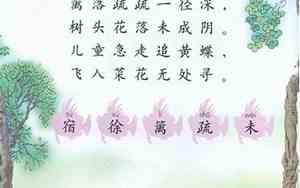 篱落疏疏一径深，
树头花落未成阴。
儿童急走追黄蝶，
飞入菜花无处寻。
宿 徐 篱 疏 未